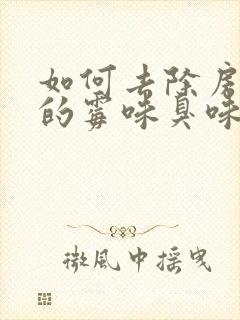 如何去除房
的霉味臭味
微風中摇曳